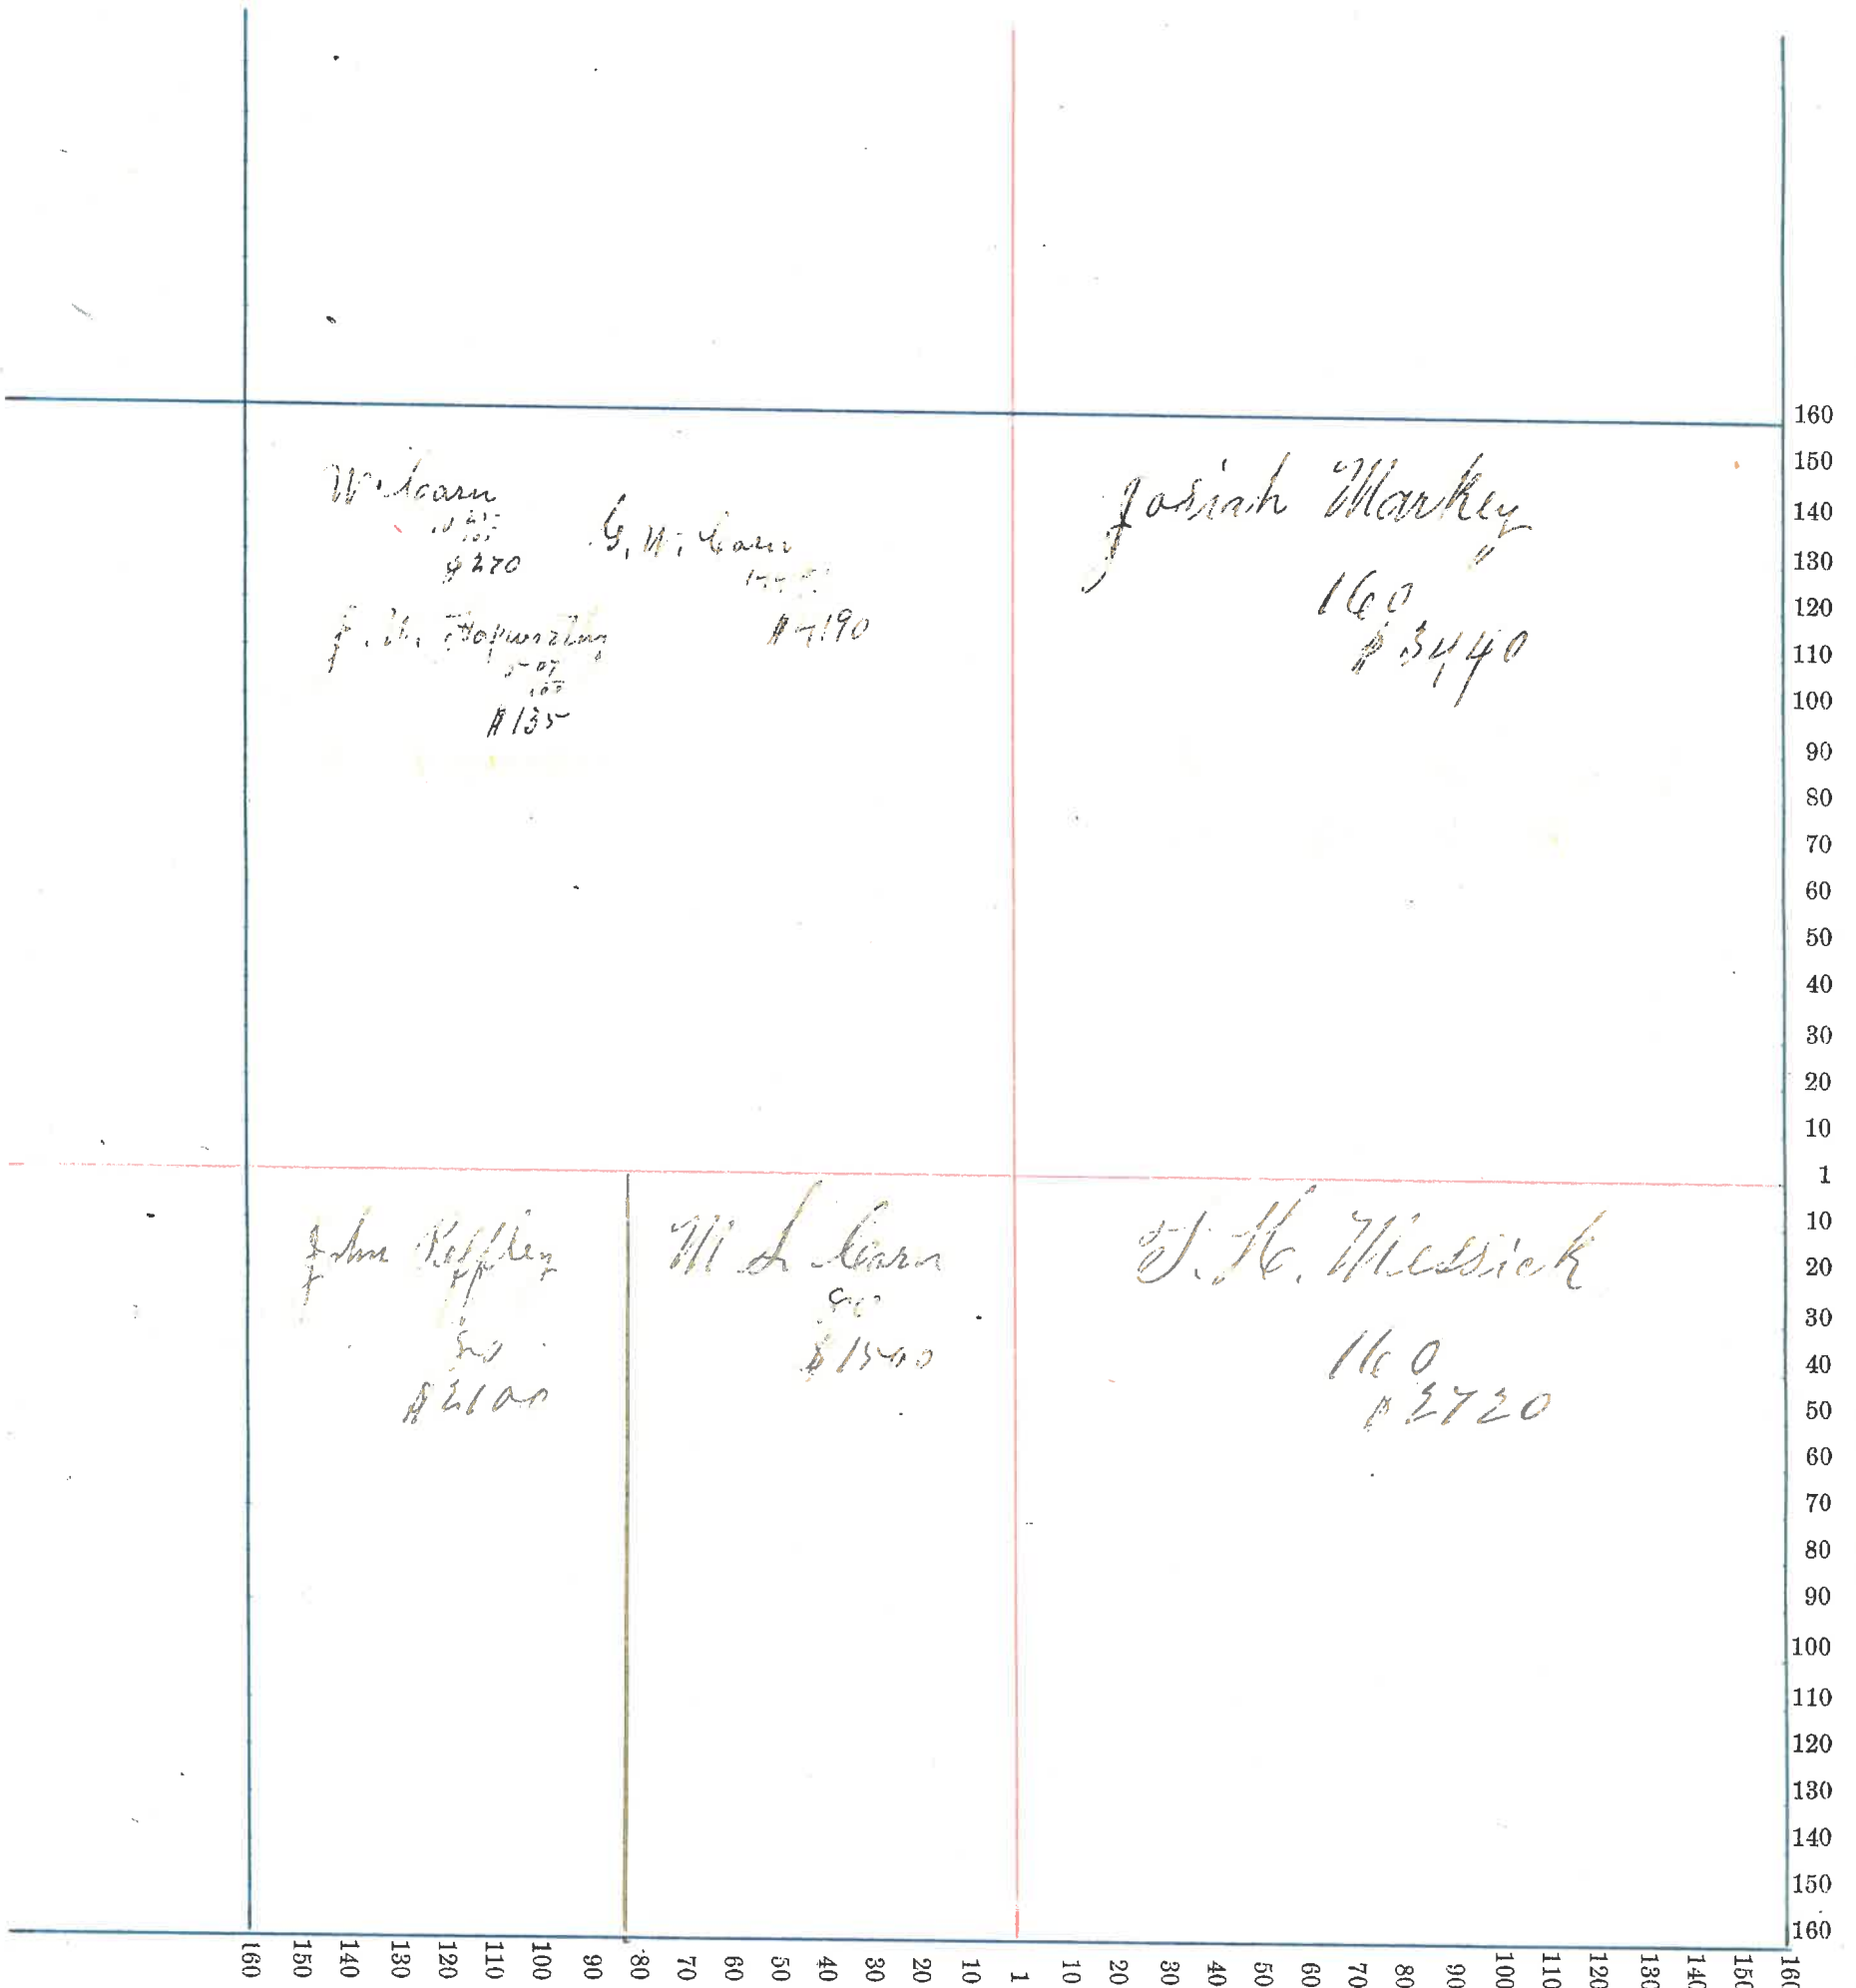 W. Carn
$270
G. W. Carn
J. W.
$135
Josiah Markey
160
$3440
John Keffley
80
$2100
M L Carn
80
$1500
T. H. Messick
160
$2720
160
150
140
130
120
110
100
90
80
70
60
50
40
30
20
10
1
10
20
30
40
50
60
70
80
90
100
110
120
130
140
150
160
160 150 140 130 120 110 100 90 80 70 60 50 40 30 20 10 1 10 20 30 40 50 60 70 80 90 100 110 120 130 140 150 160